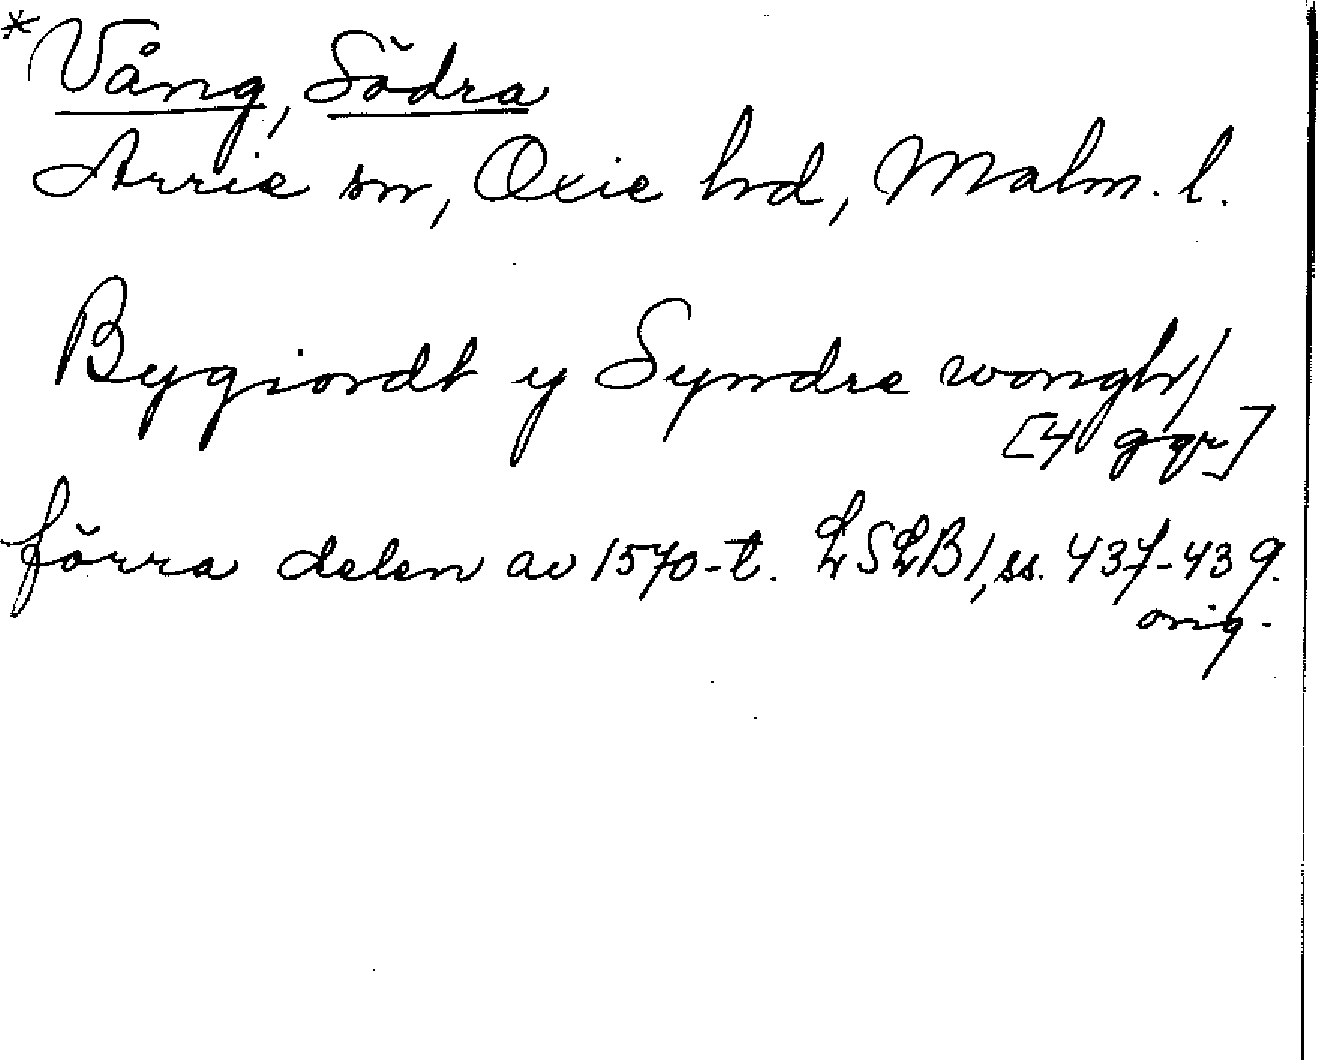 *Vång, Södra
Arrie sn, Oxie hd, Malm. l.
Bygiordt y Syndre wongh/
[4 ggr]
förra delen av 1570-t. LSLB1, ss. 437-439.
orig.